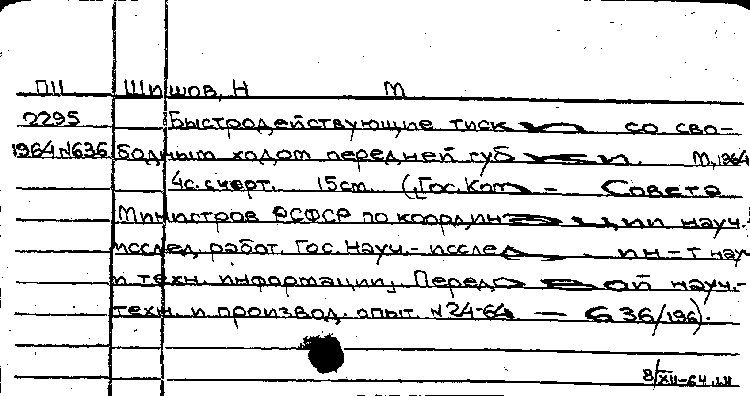 П11 Шишов, Н М
0295 Быстродействующие тиски со сво-
1964 №636 бодным ходом передней губки. М, 1964
4с. с черт. 15см. (Гос. Ком Совета
Министров РСФСР по координации науч.
исслед. работ. Гос. Науч.-исслед. ин-т науч
и техн. информации. Передовой науч.-
техн. и производ. опыт. №24-64 — 636/196).
8/XII-64